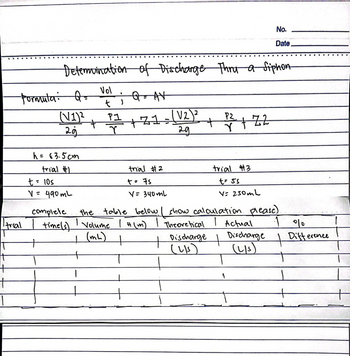 No.
Date
Determination of Discharge Thru a Siphon
Formula: Q = Vol/t ; Q = AV
(V1)²/2g + P1/γ + Z1 = (V2)²/2g + P2/γ + Z2
h = 63.5cm
trial #1 trial #2 trial #3
t = 10s t = 7s t = 5s
V = 490mL V = 340mL V = 250mL
complete the table below (show calculation please)
trial time(s) Volume (mL) H(m) Theoretical Discharge (L/s) Actual Discharge (L/s) % Difference